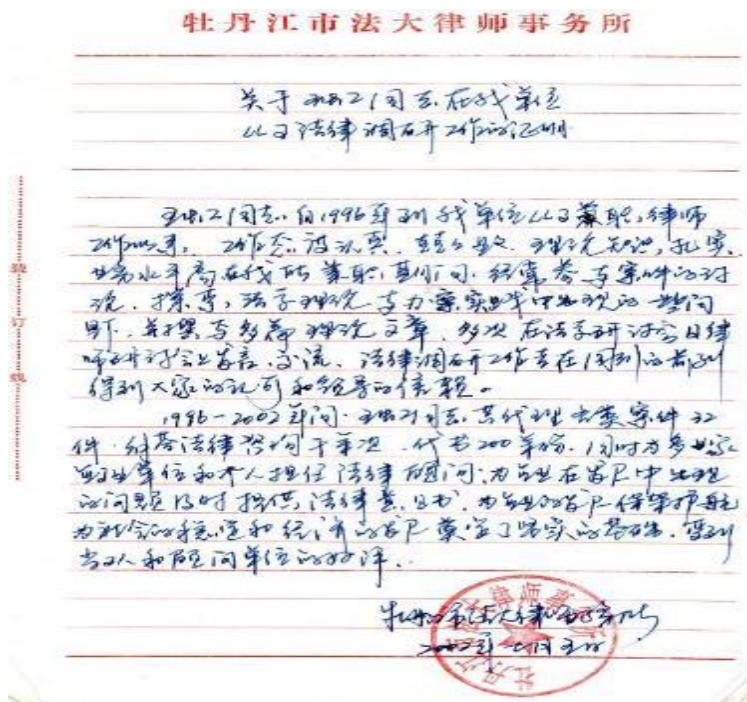 牡丹江市法大律师事务所
关于 同志在我单位
从事法律调研工作的证明
同志自1996年到我单位从事兼职律师
工作以来,工作态度认真,兢兢业业,理论知识扎实,
业务水平高在我所兼职期间,经常参与案件的讨
论、探索,法学理论与办案实践中出现的一些问
题,并撰写多篇理论文章,多次在法学研讨会且律
师研讨会上发言、交流,法律调研工作走在同列的前列
得到大家的认可和领导的信赖。
1996-2002年间 同志共代理各类案件32
件,解答法律咨询千余次,代书200余份,同时为多家
单位和个人担任法律顾问,为企业在发展中出现
的问题及时提供法律意见书,为企业的发展保驾护航
为社会的稳定和经济的发展奠定了坚实的基础,受到
当事人和顾问单位的好评。
牡丹江市法大律师事务所
2002年 七月
装订线